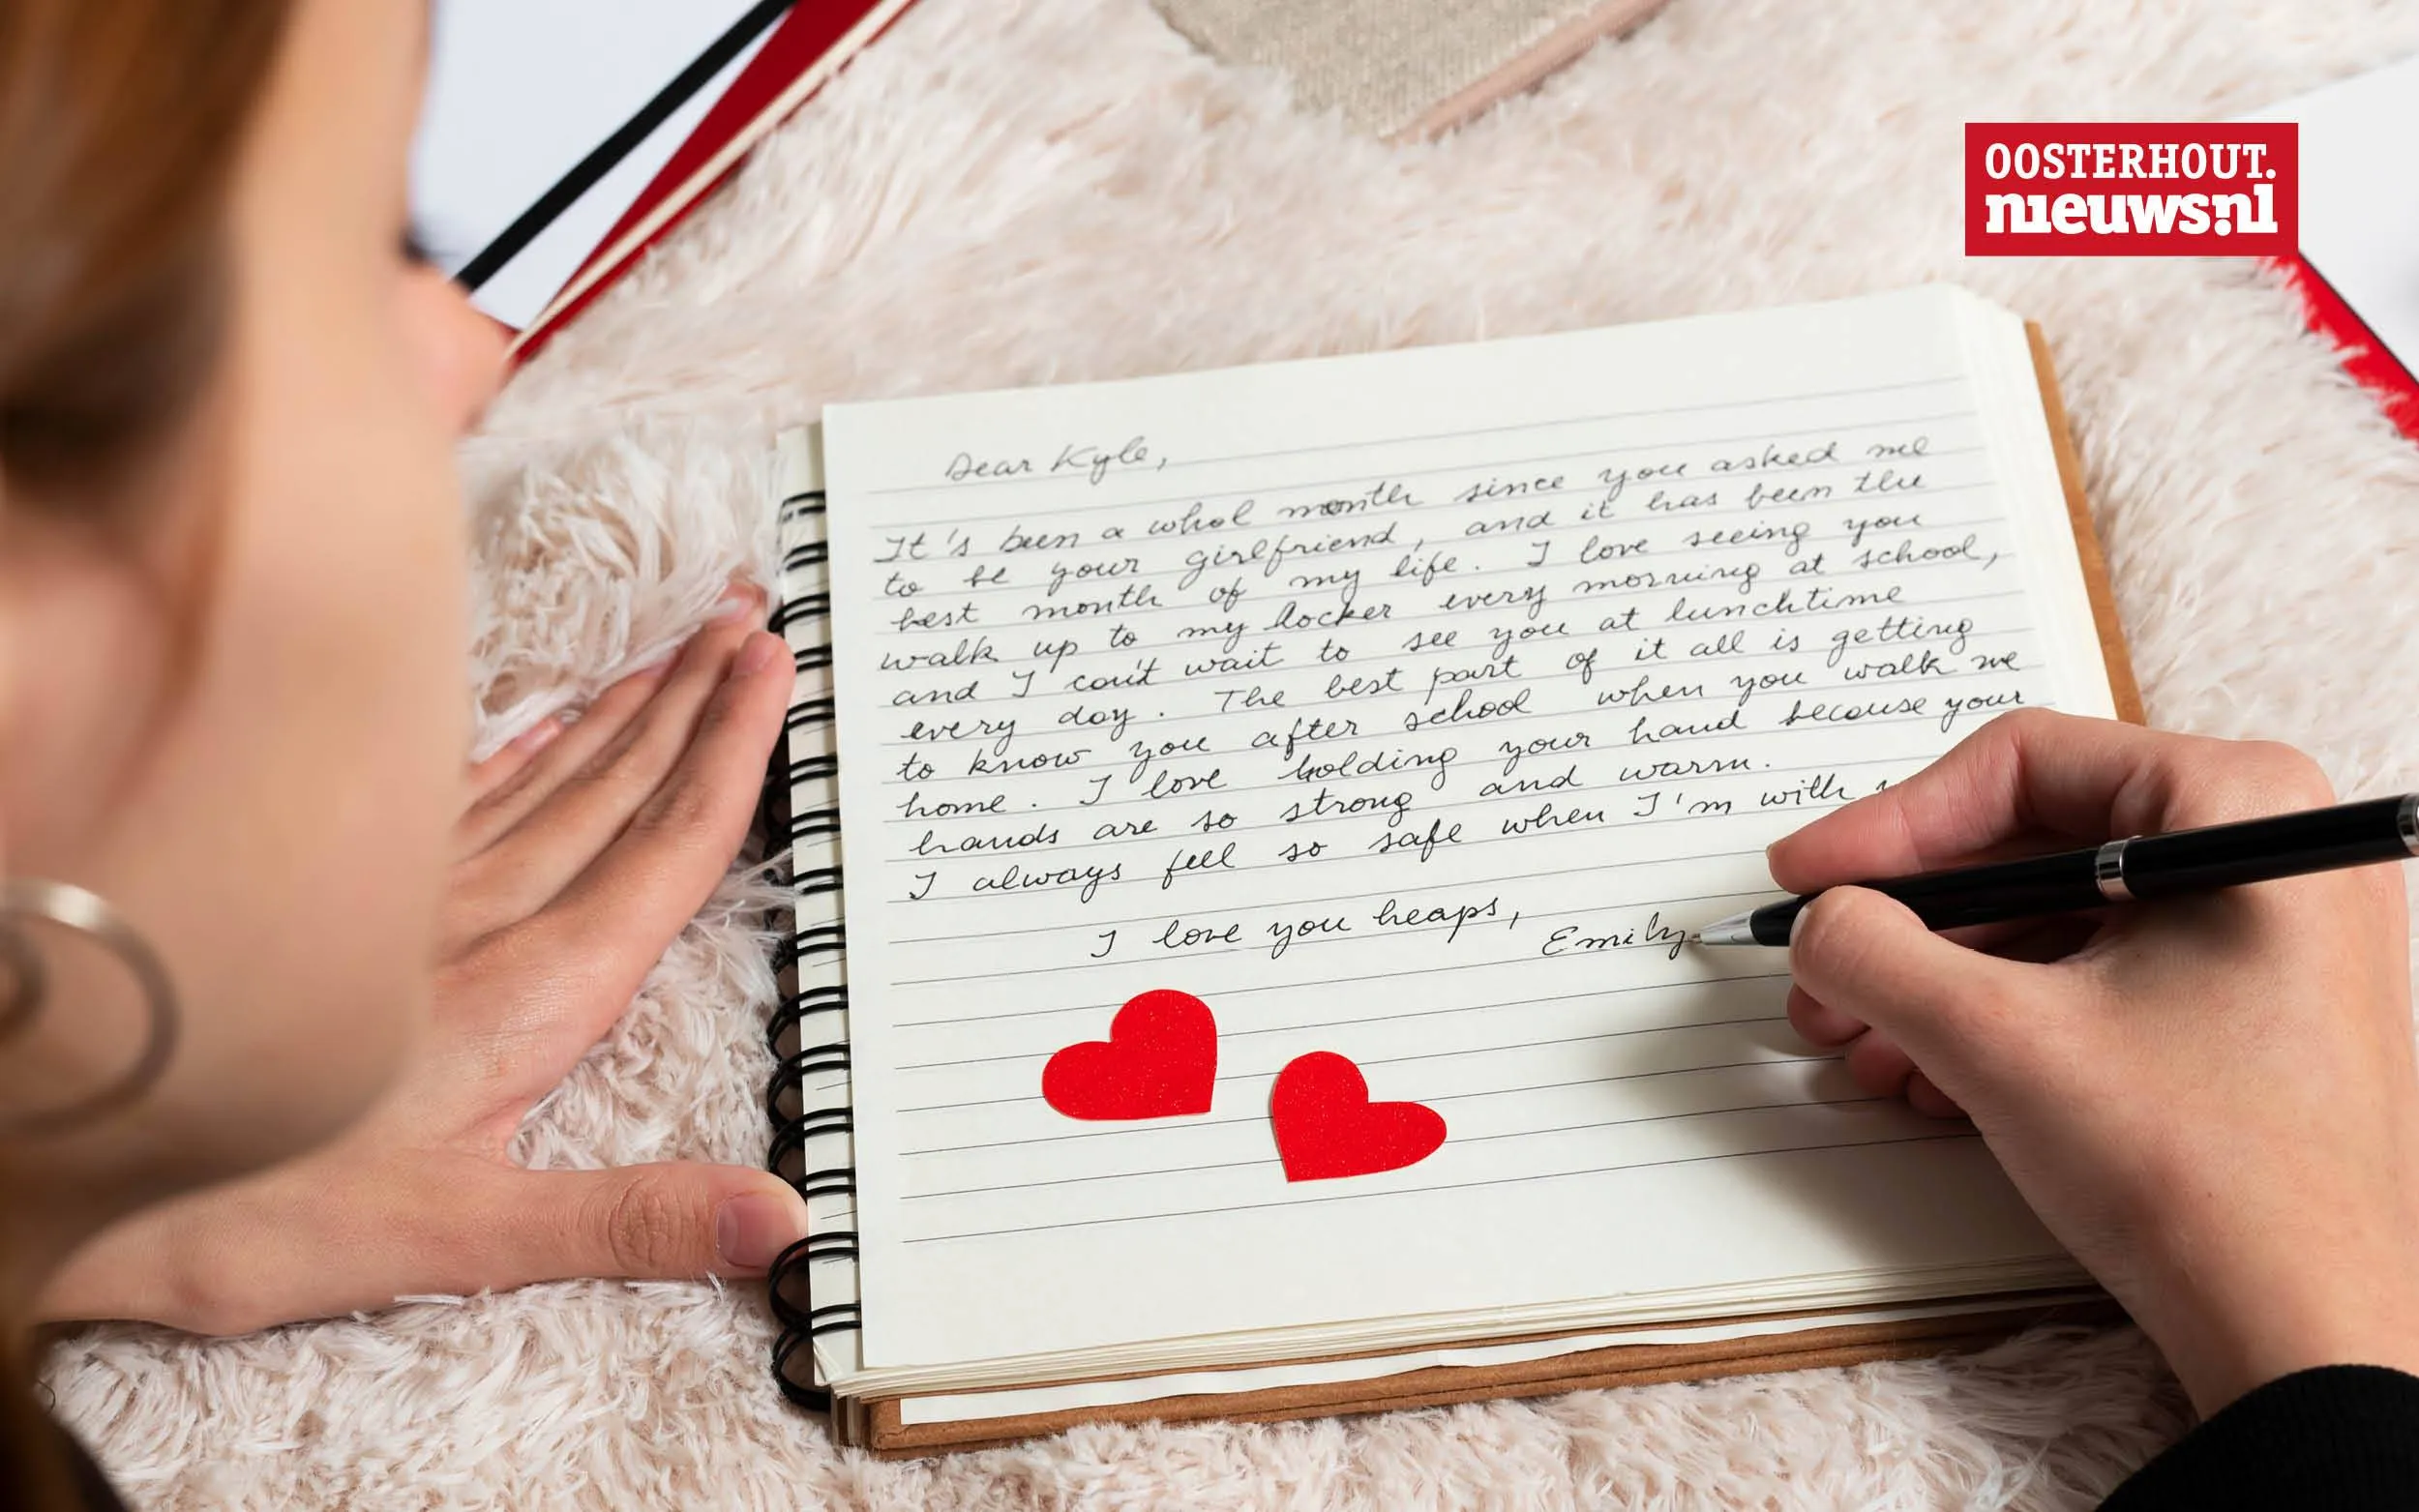 OOSTERHOUT.
nieuws.nl
Dear Kyle,
It's been a whol month since you asked me
to be your girlfriend, and it has been the
best month of my life. I love seeing you
walk up to my locker every morning at school,
and I can't wait to see you at lunchtime
every day. The best part of it all is getting
to know you after school when you walk me
home. I love holding your hand because your
hands are so strong and warm.
I always feel so safe when I'm with
I love you heaps,
Emily